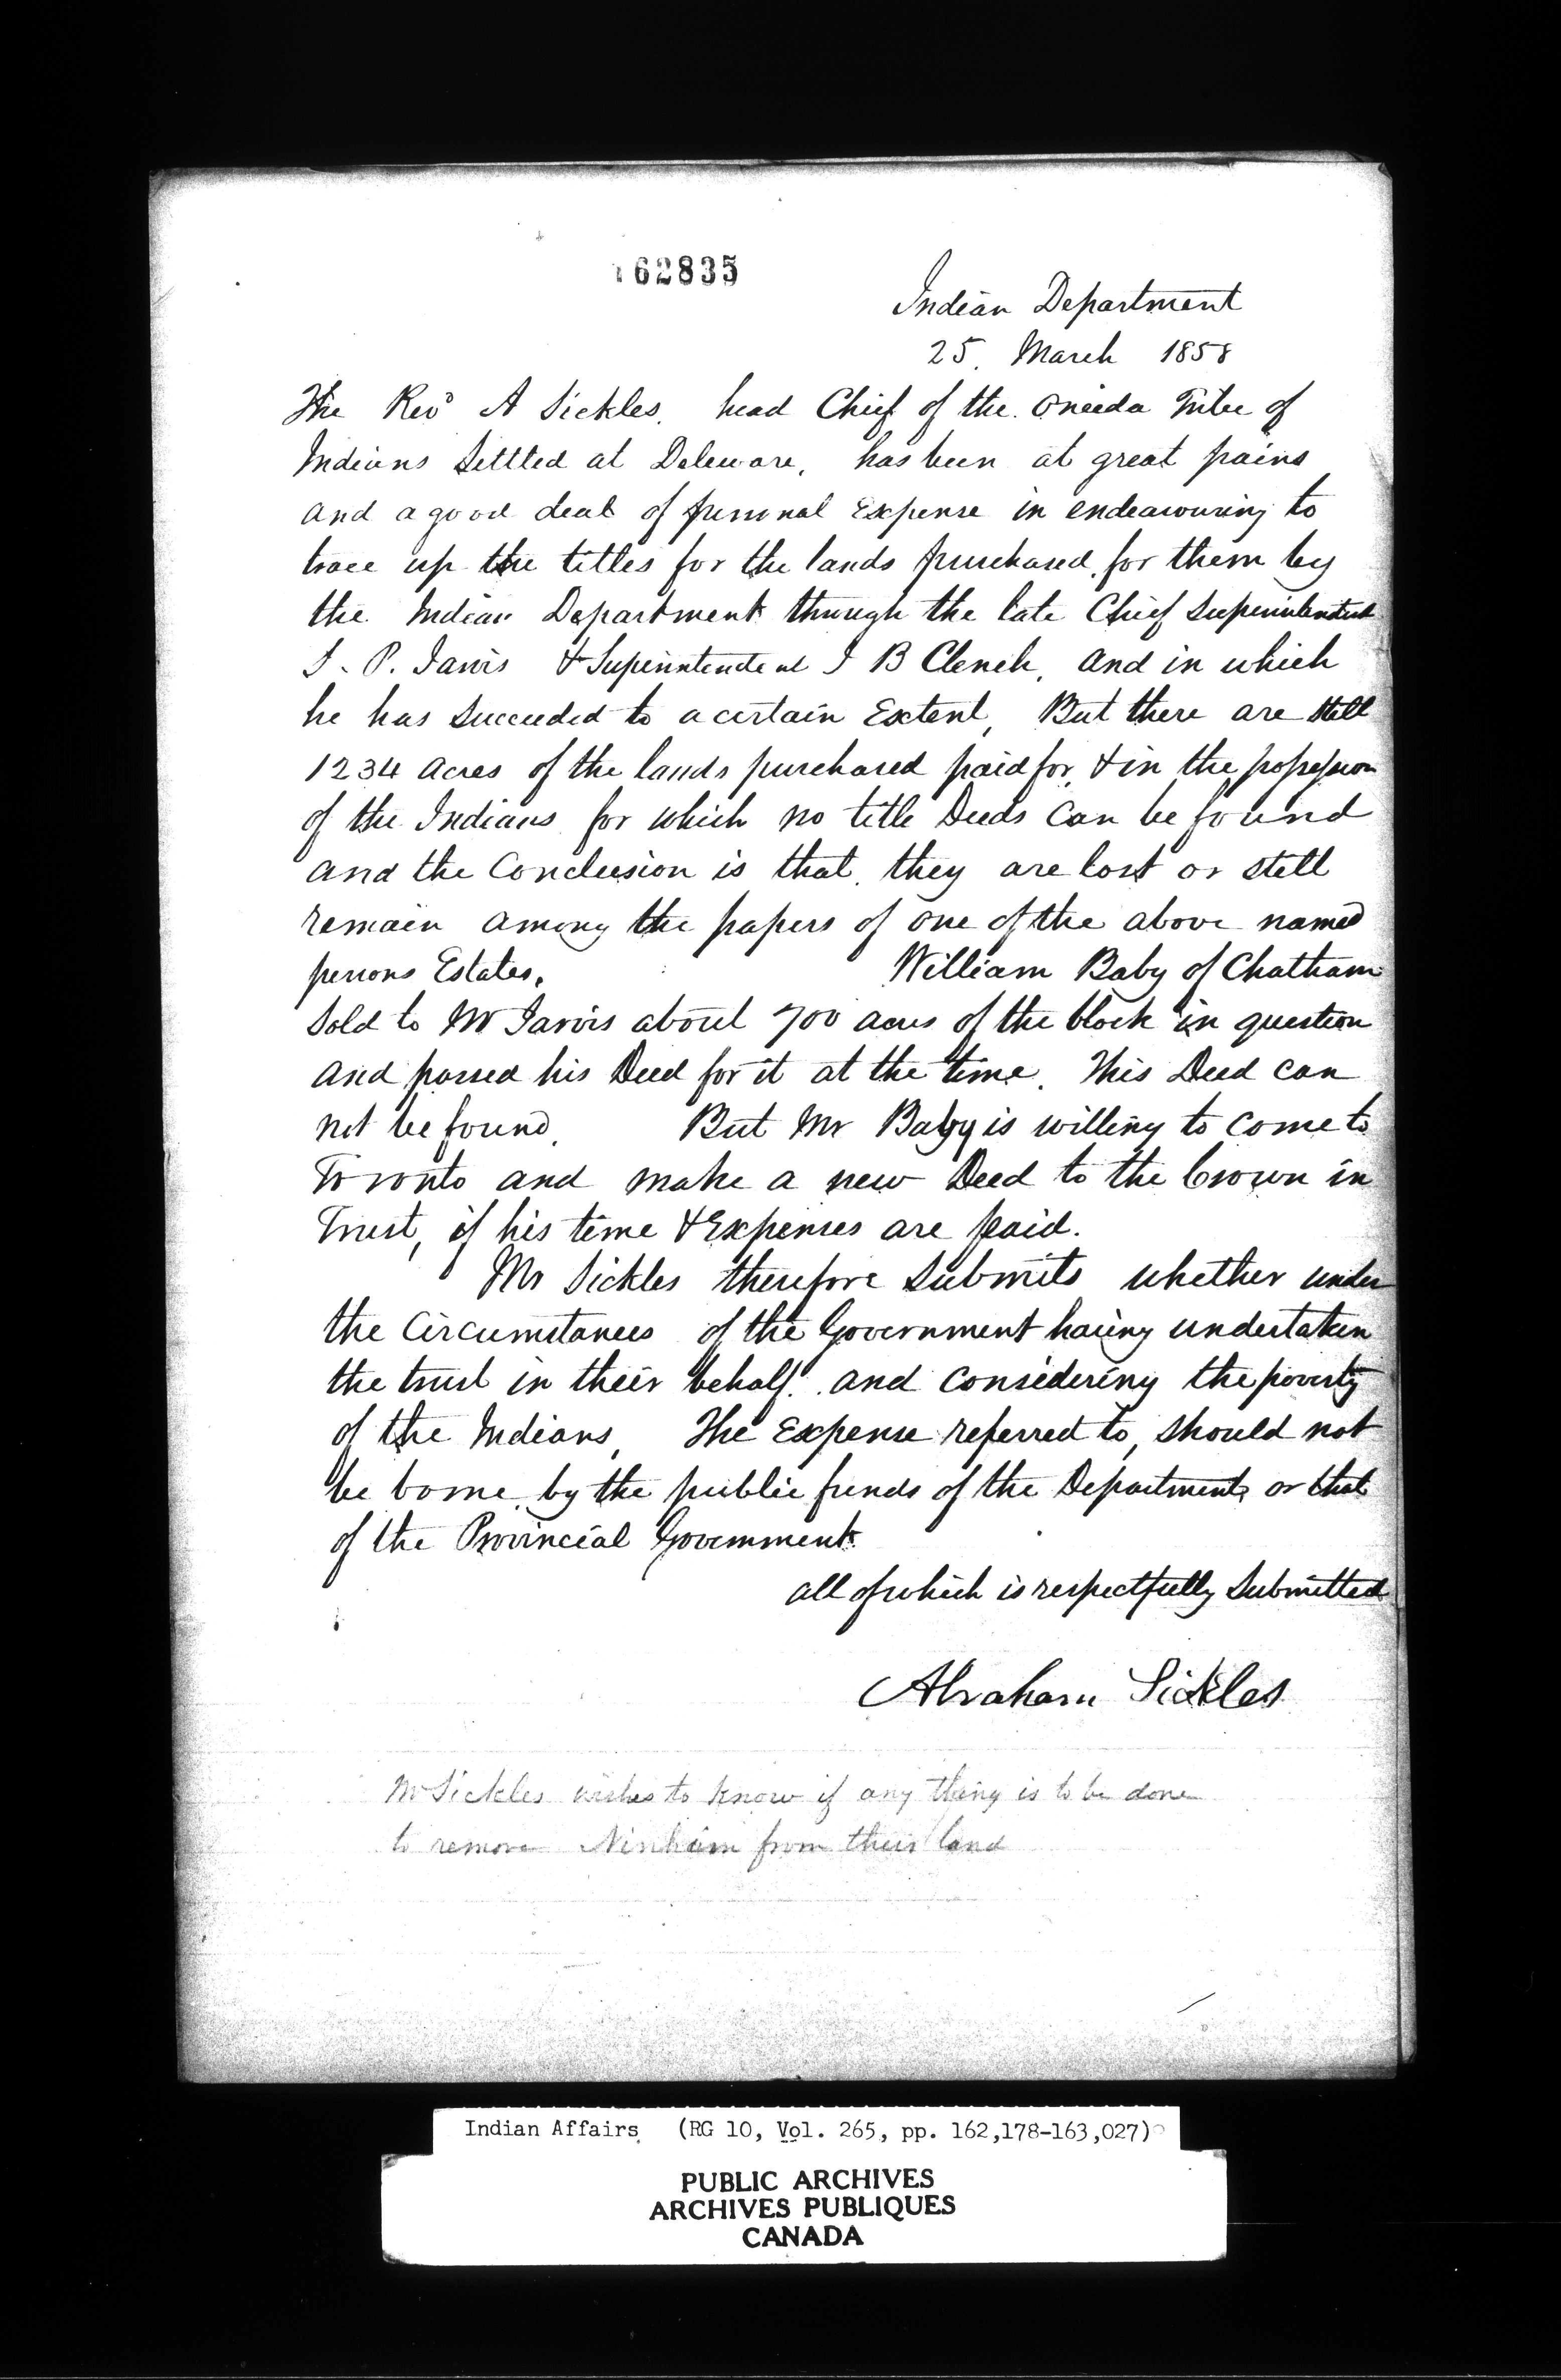 162835
Indian Department
25. March 1858
The Revd A Sickles. head Chief of the Oneida Tribe of
Indians Settled at Deleware, has been at great pains
and a good deal of personal Expense in endeavouring to
trace up the titles for the lands purchased for them by
the Indian Department through the late Chief Superintendent
S. P. Jarvis & Superintendent J B Clench, and in which
he has Succeeded to a certain Extent, But there are still
1234 acres of the lands purchased paid for, & in the possession
of the Indians for which no title Deeds can be found
and the Conclusion is that they are lost or still
remain among the papers of one of the above named
persons Estates. William Baby of Chatham
Sold to Mr Jarvis about 700 acres of the block in question
and passed his Deed for it at the time. This Deed can
not be found. But Mr Baby is willing to come to
Toronto and make a new Deed to the Crown in
Trust, if his time & Expenses are paid.
Mr Sickles therefore Submits whether under
the Circumstances of the Government having undertaken
the trust in their behalf. and considering the poverty
of the Indians, The Expense referred to, should not
be borne by the public funds of the Department, or that
of the Provincial Government.
all of which is respectfully Submitted
Abraham Sickles
Mr Sickles wishes to know if any thing is to be done
to remove Ninham from their land
Indian Affairs. (RG 10, Vol. 265, pp. 162,178-163,027)
PUBLIC ARCHIVES
ARCHIVES PUBLIQUES
CANADA